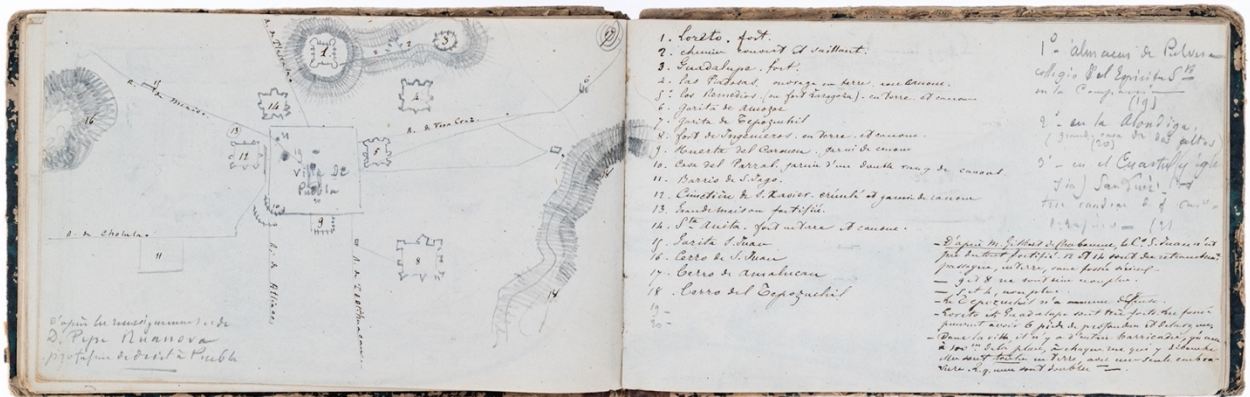 R. de Tlascala
1
2
3
4
R. de Mexico
16
14
R. de Vera Cruz
6
13
12
15
19
5
7
Ville de
Puebla
20
17
10
9
R. de Cholula
11
R. de Atlisco
R. de Teotihuacan
8
18
D'après les renseignements de
D. Pepe Ruanova
professeur de droit à Puebla
1. Loreto. fort.
2. chemin couvert et saillant.
3. Guadalupe. fort.
4. las Patosas, ouvrage en terre. canons.
5. los Remedios (ou fort Zaragoza) - en terre. et canons
6. Garita de Amozoc
7. Garita de Tepozuchil
8. fort de Ingenieros. en terre. et canons.
9. Huerta del Carmen. garni de canons
10. Casa del Parral, garnie d'un double rang de canons.
11. Barrio de S. Iago.
12. Cimetière de S. Xavier. crénelé et garni de canons
13. Grande maison fortifiée.
14. Sta Anita, fort en terre et canons.
15. Garita S. Juan
16. Cerro de S. Juan
17. Cerro de Amalucan
18. Cerro del Tepozuchil
19 -
20 -
1º almacen de Polvora
collegio del Espiritu Sto
en la Compania
(19)
2º en la Alondiga
(grande casa de dos altos)
(20)
3º - en el Cuartel y
San Luis
- D'après M. Gilbert de le Co. S. Juan n'est
pas du tout fortifié. 12 et 14 sont des retranchemts
passagers, en terre, sans fossés sérieux.
- 9 et 8 ne sont rien non plus.
- 5 et 4, non plus.
- le Tepozuchil n'a aucune défense.
- Loreto et Guadalupe sont très forts. les fossés
peuvent avoir 6 pieds de profondeur et
- Dans la ville, il n'y a d'autres barricades, qu'une
à de la place, à chaque rue qui y débouche
elles sont toutes en terre, avec une seule embra-
sure. sont doubles